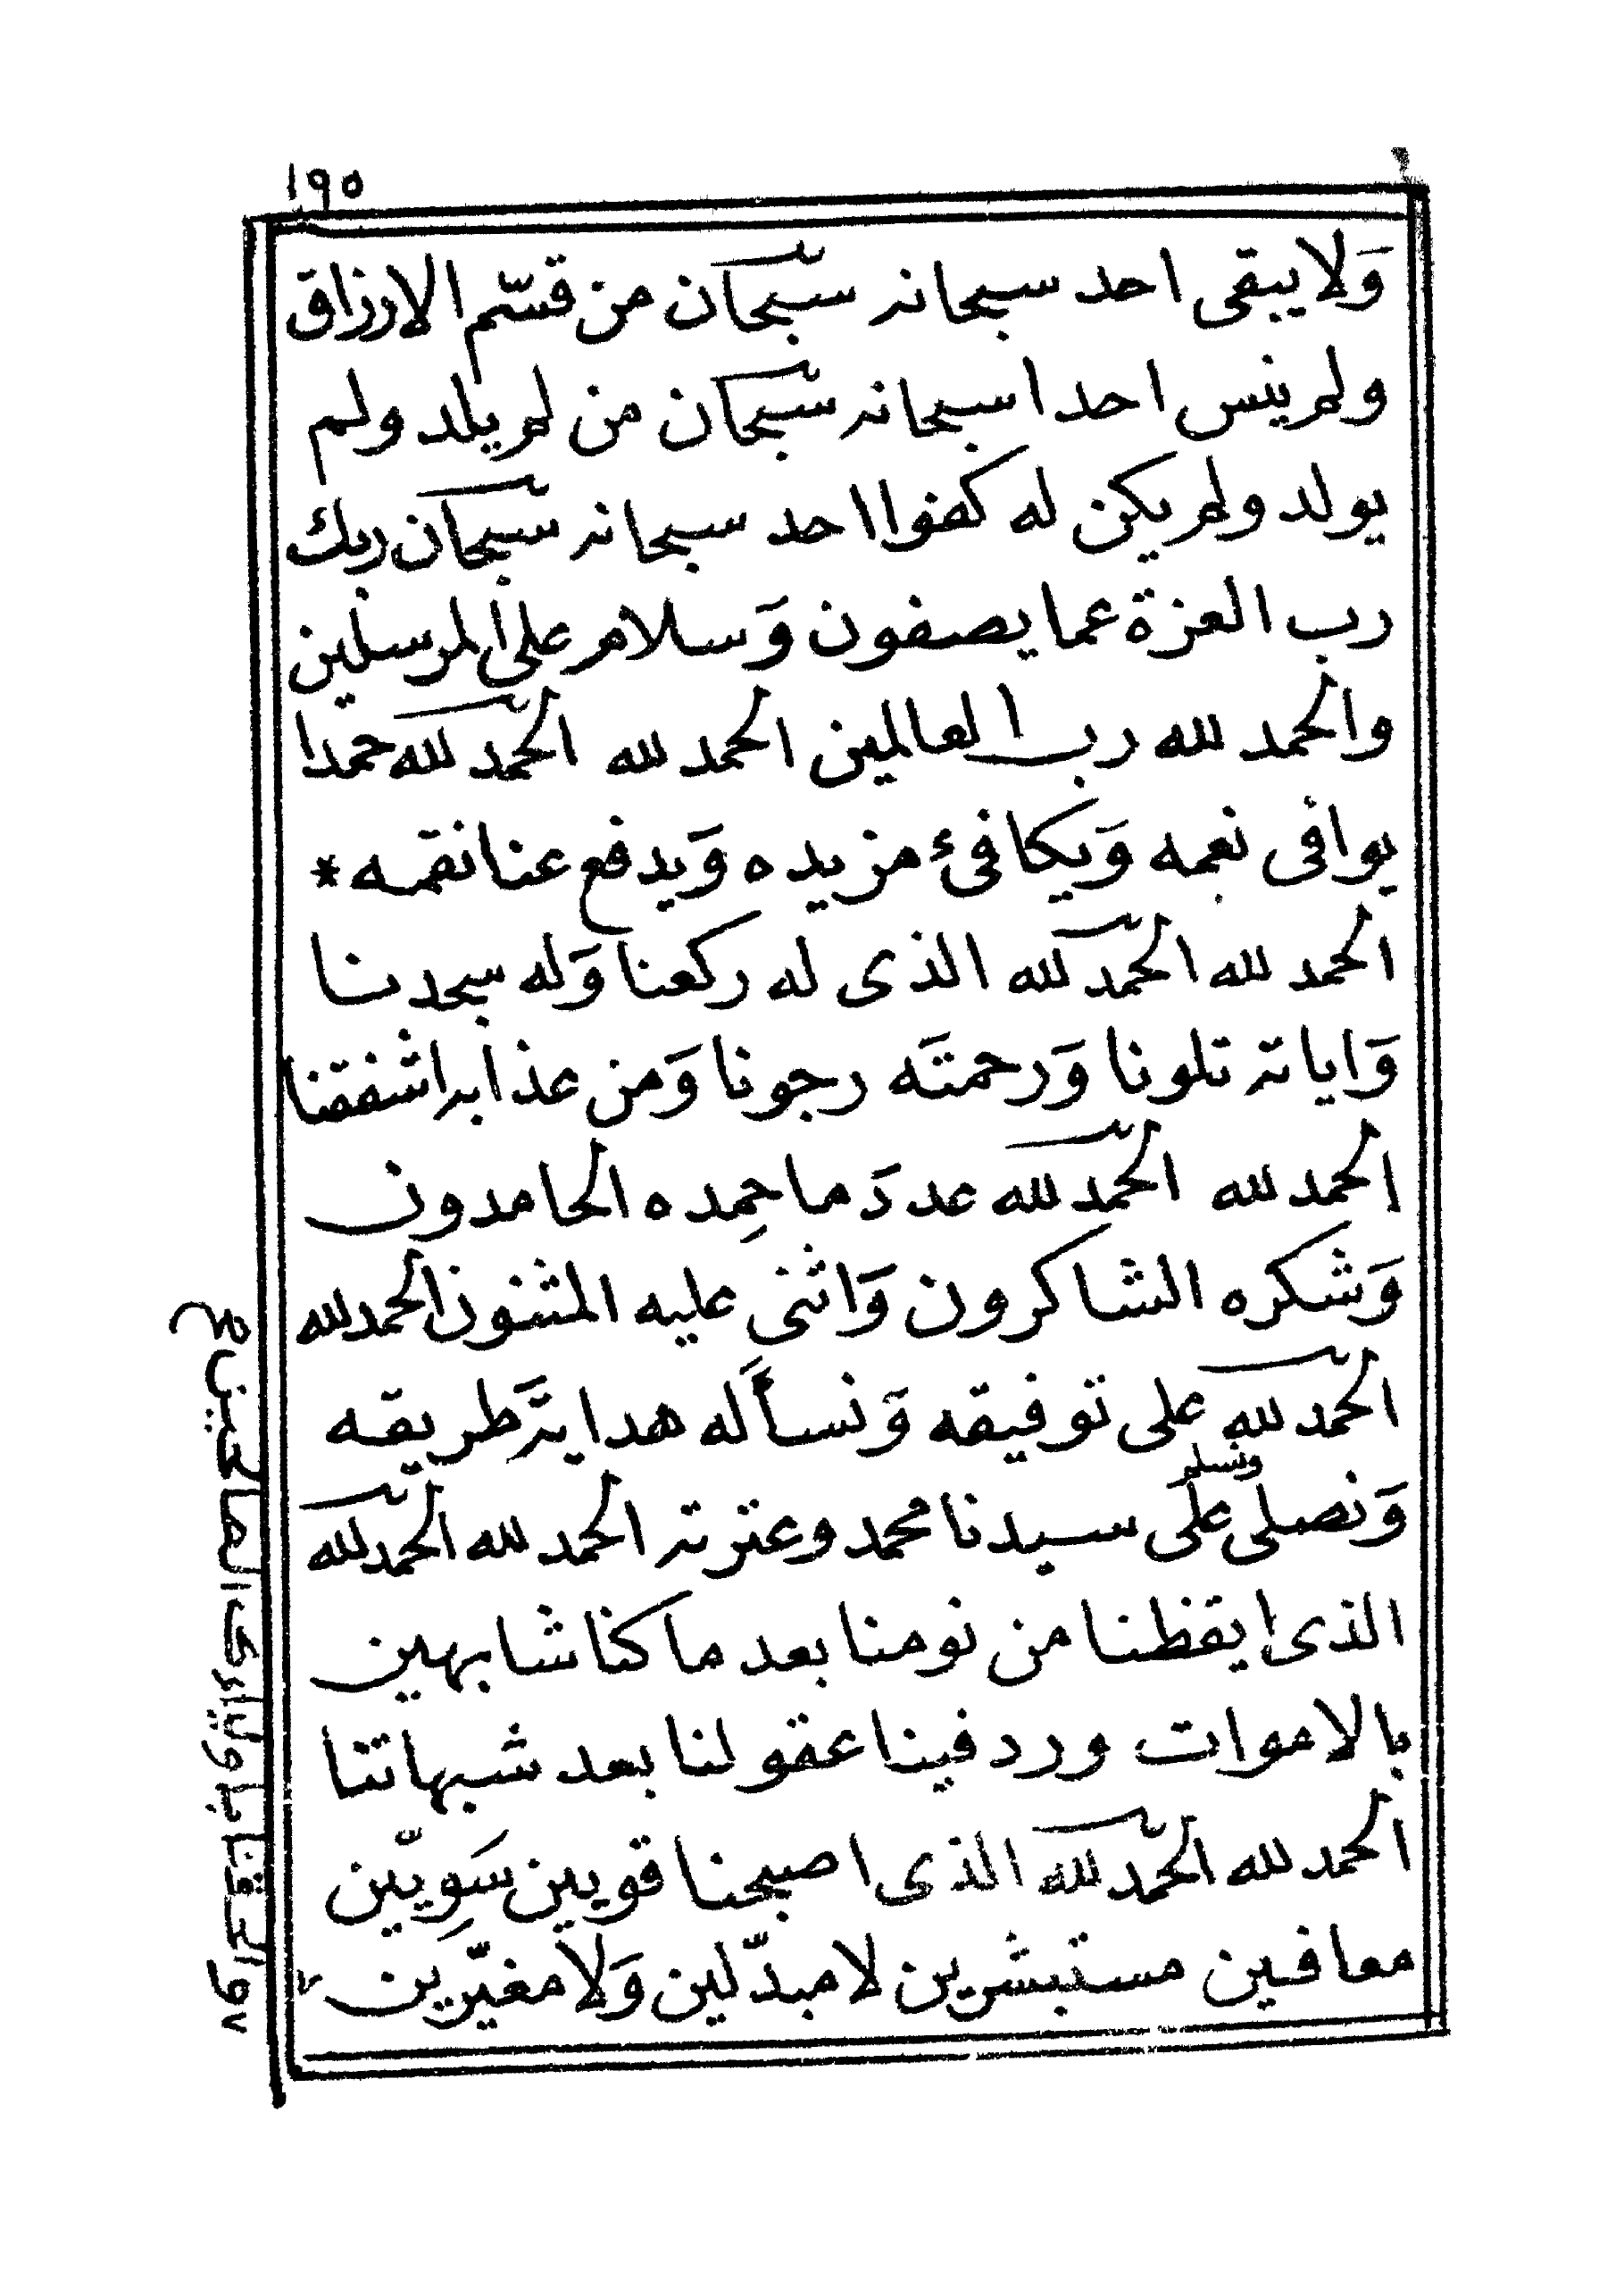 ١٩٥
وَلا يبقى احد سبحانه سبحان من قسّم الارزاق
ولم ينس احد اسبحانه سبحان من لم يلد ولم
يولد ولم يكن له كفوا احد سبحانه سبحان ربك
رب العزة عما يصفون وَسلام على المرسلين
والحمد لله رب العالمين الحمد لله الحمد لله حمدا
يوافى نعمه وَيكافئ مزيده وَيدفع عنا نقمه *
الحمد لله الحمد لله الذى له ركعنا وَله سجدنا
وَاياته تلونا وَرحمتَه رجونا وَمن عذابه اشفقنا
الحمد لله الحمد لله عددَ ما حمِده الحامدون
وَشكره الشاكرون وَاثنى عليه المثنون الحمد لله
الحمد لله على توفيقه وَنسأَله هدايةَ طريقه
وَنصلى ونسلم على سيدنا محمد وعترته الحمد لله الحمد لله
الذى ايقظنا من نومنا بعد ما كنا شابهين
بالاموات ورد فينا عقولنا بعد شبهاتنا
الحمد لله الحمد لله الذى اصبحنا قويين سَوِيّين
معافين مستبشرين لا مبدّلين وَلا مغيّرين
والحقنا باوليائك الصالحين